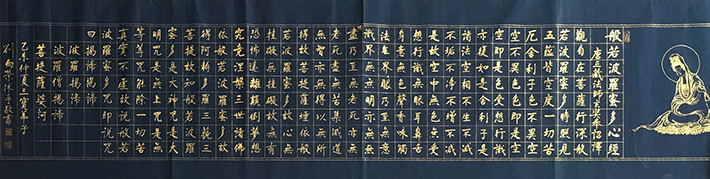 般若波羅蜜多心經
唐三藏法師玄奘奉詔譯
觀自在菩薩行深般
若波羅蜜多時照見
五蘊皆空度一切苦
厄舍利子色不異空
空不異色色即是空
空即是色受想行識
亦復如是舍利子是
諸法空相不生不滅
不垢不淨不增不減
是故空中無色無受
想行識無眼耳鼻舌
身意無色聲香味觸
法無眼界乃至無意
識界無無明亦無無明
盡乃至無老死亦無
老死盡無苦集滅道
無智亦無得以無所
得故菩提薩埵依般
若波羅蜜多故心無
挂礙無挂礙故無有
恐怖遠離顛倒夢想
究竟涅槃三世諸佛
依般若波羅蜜多故
得阿耨多羅三藐三
菩提故知般若波羅
蜜多是大神咒是大
明咒是無上咒是無
等等咒能除一切苦
真實不虛故說般若
波羅蜜多咒即說咒
曰揭諦揭諦
波羅揭諦
波羅僧揭諦
菩提薩婆訶
乙未仲夏三寶弟子
沐手敬書